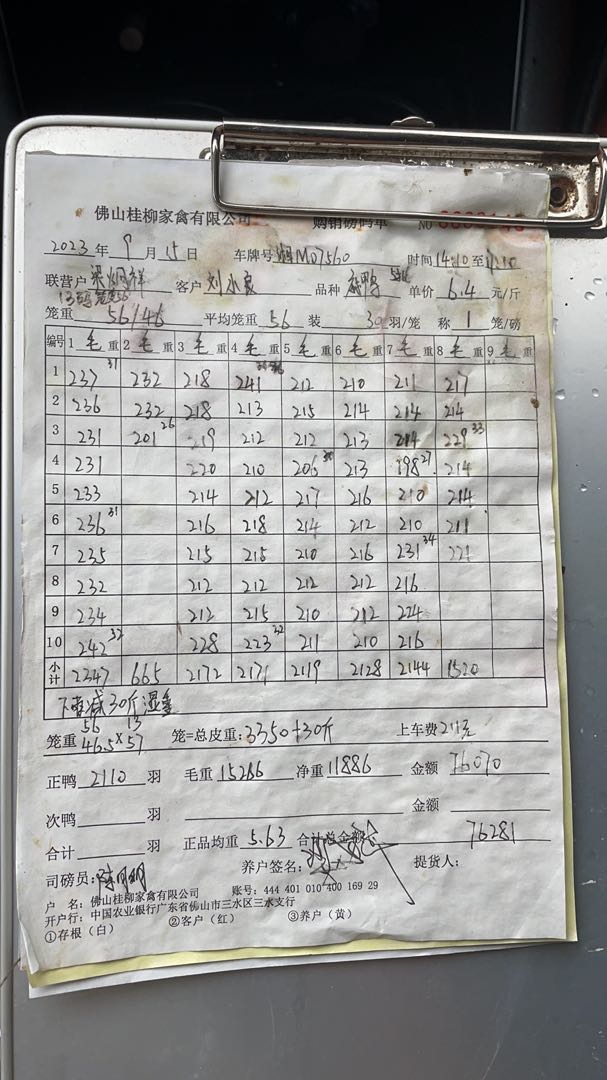 佛山桂柳家禽有限公司 购销磅码单 NO
2023 年 9 月 15 日 车牌号 MD7560 时间 14:10 至
联营户 梁炯祥 客户 刘水良 品种 麻鸭 单价 6.4 元/斤
笼重 56/46 平均笼重 56 装 30 羽/笼 称 1 笼/磅
编号 1 毛 重 2 毛 重 3 毛 重 4 毛 重 5 毛 重 6 毛 重 7 毛 重 8 毛 重 9 毛 重
1 237 31 232 218 241 212 210 211 217
2 236 232 218 213 215 214 214 214
3 231 201 26 219 212 212 213 214 229 33
4 231 220 210 206 213 198 27 214
5 233 214 212 217 216 210 214
6 236 31 216 218 214 212 210 211
7 235 215 215 210 216 231 34 221
8 232 212 212 212 212 216
9 234 212 215 210 212 224
10 242 32 228 223 32 211 210 216
小计 2347 665 2172 2171 2119 2128 2144 1520
减30斤
56 13
笼重 46.5×57 笼=总皮重: 3350+30斤 上车费 211元
正鸭 2110 羽 毛重 15266 净重 11886 金额 76070
次鸭 羽 金额
合计 羽 正品均重 5.63 合计总金额 76281
司磅员: 养户签名: 提货人:
户 名: 佛山桂柳家禽有限公司 账号: 444 401 010 400 169 29
开户行: 中国农业银行广东省佛山市三水区三水支行
①存根（白） ②客户（红） ③养户（黄）